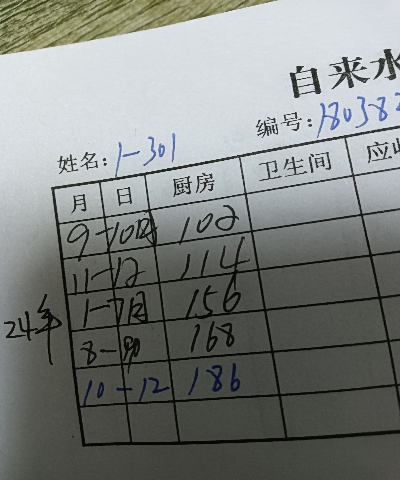 自来水
姓名: 1-301 编号: 180382
月 日 厨房 卫生间 应
9-10月 102
11-12 114
24年 1-7月 156
8-9月 168
10-12 186